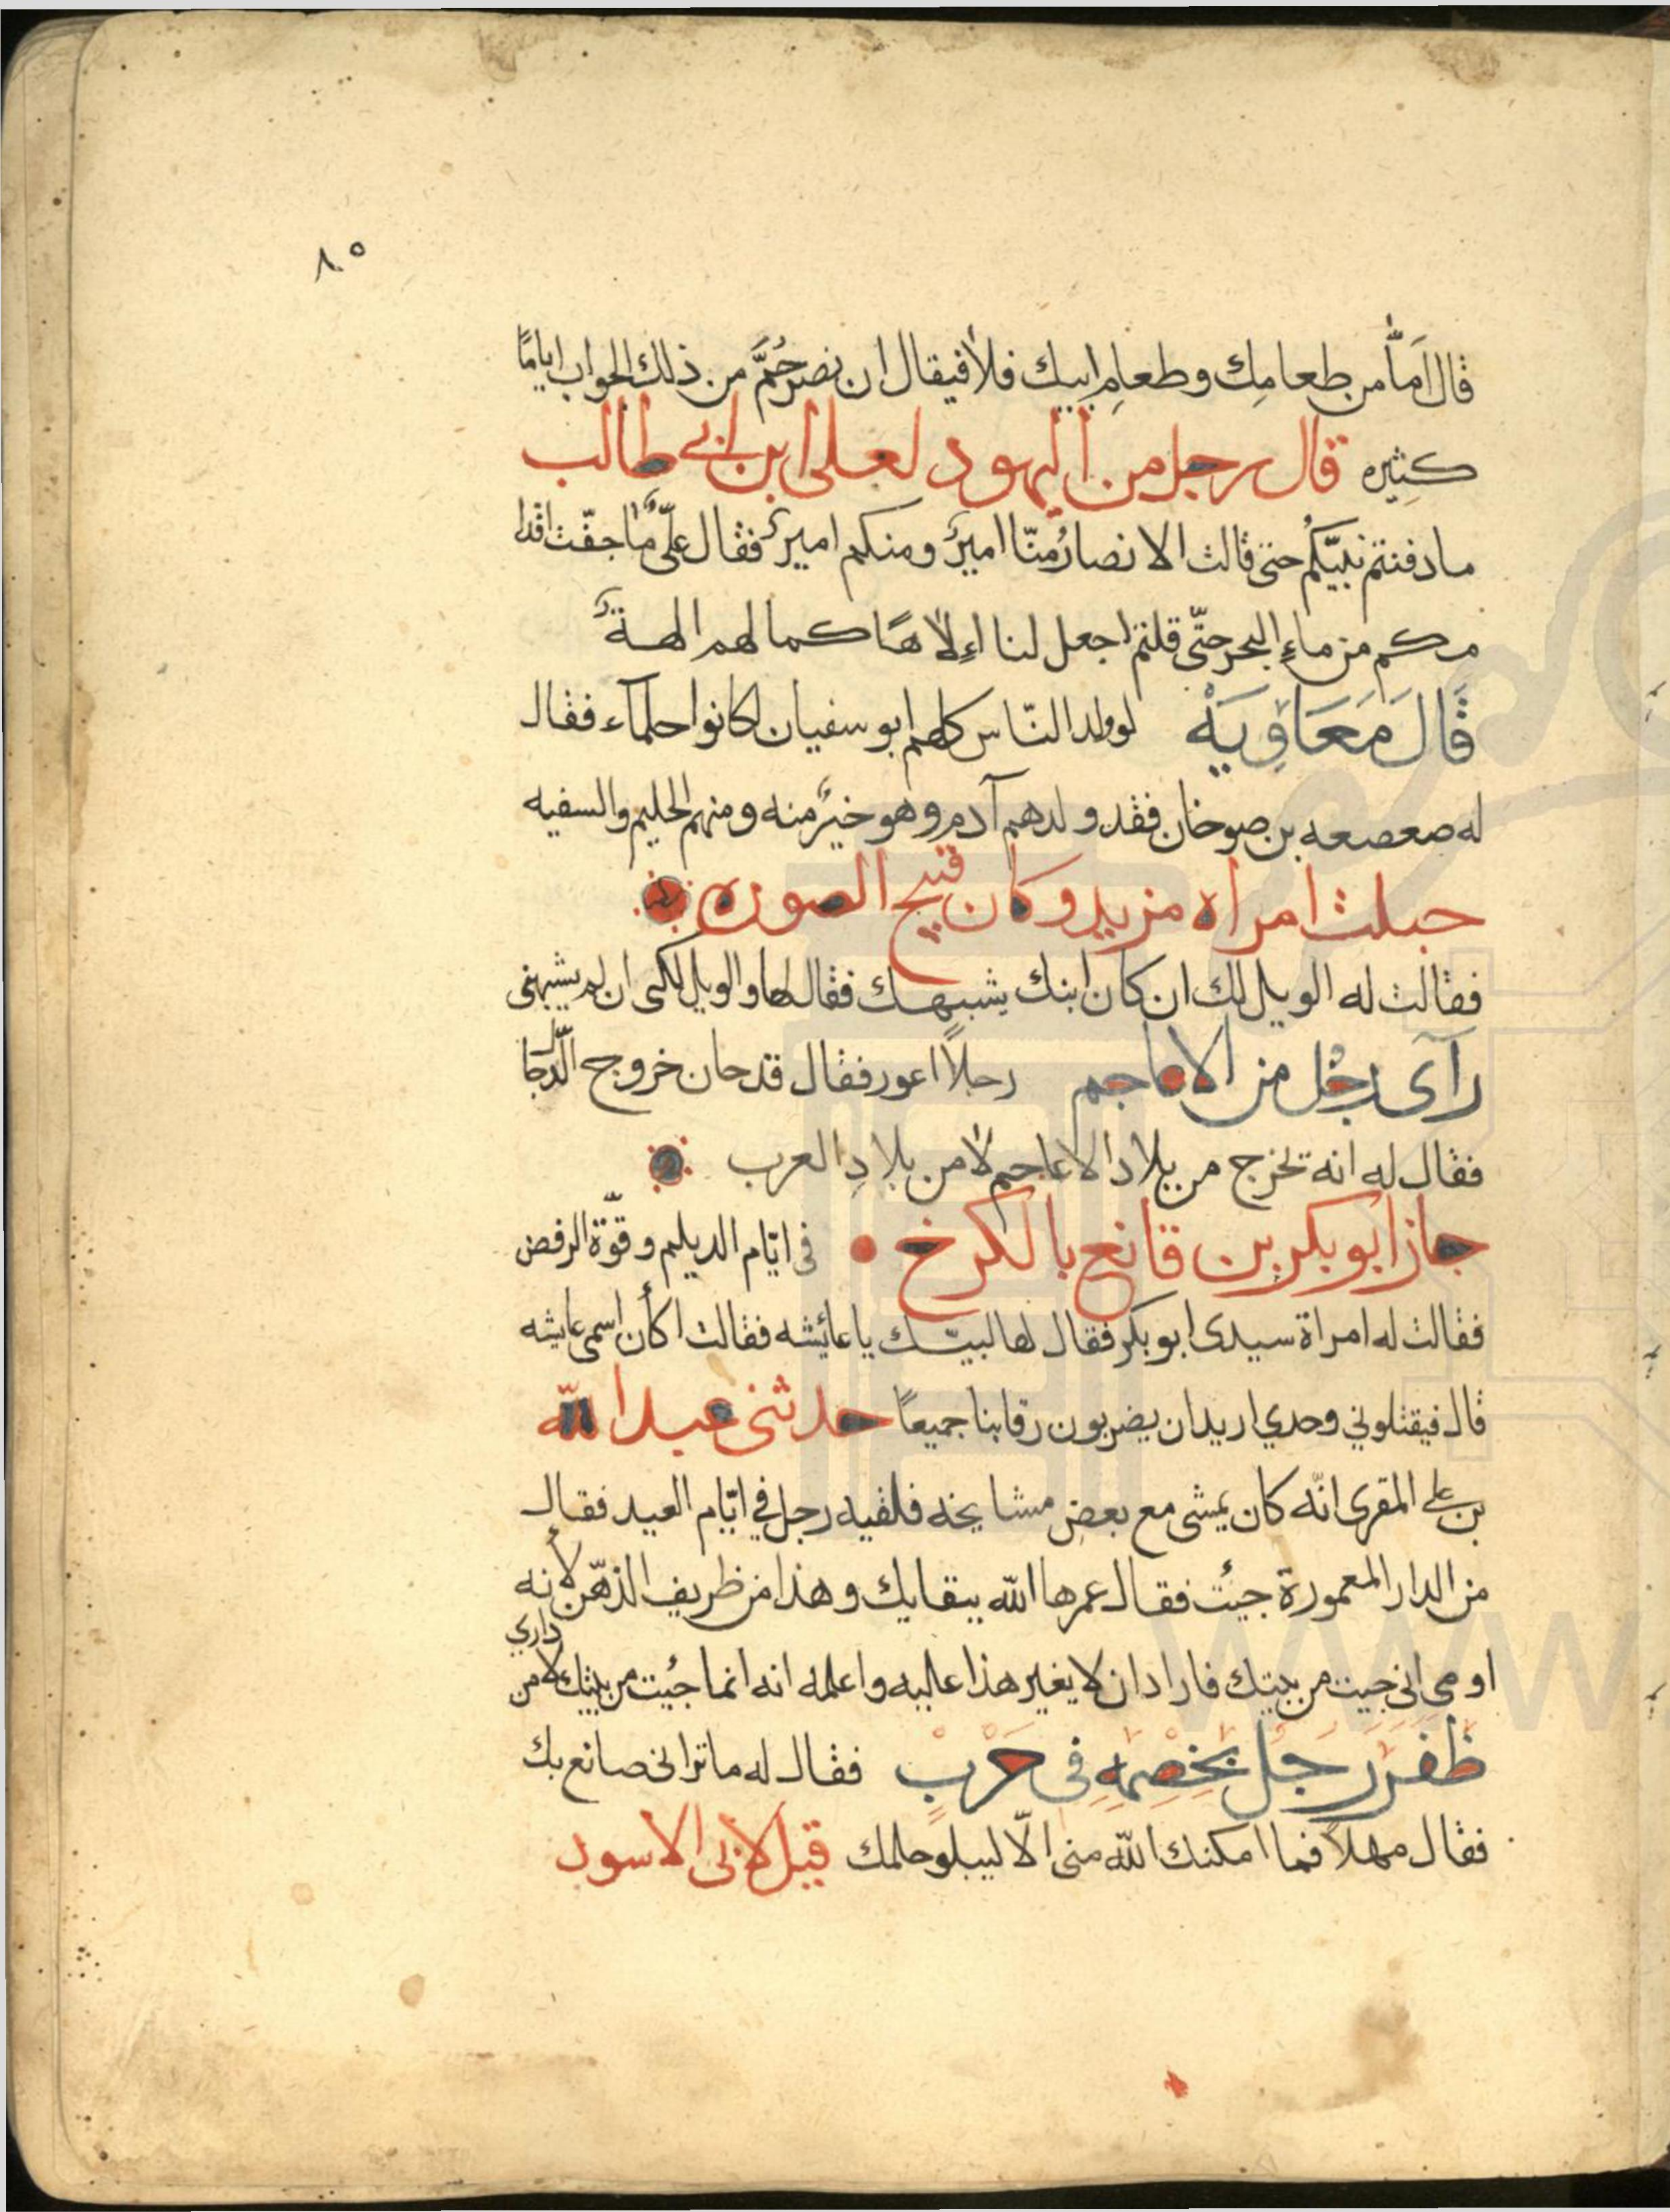 ٨٥
قال اَمّا من طعامِك وطعامِ ابيك فلا فيقال ان نصر حُمَّ من ذلك الجواب ايامًا
كثيره قال رجل من اليهود لعلى ابن ابى طالب
ما دفنتم نبيّكُم حتى قالت الانصارُ منّا اميرٌ ومنكم اميرٌ فقال علىٌّ ما جفّت اقدا
مكم من ماءِ البحر حتّى قلتم اجعل لنا اِلاهًا كما لهم الهةٌ
قَالَ مَعَاوِيَهْ لو ولد النّاس كلهم ابو سفيان لكانوا حلمآء فقال
له صعصعه بن صوخان فقد ولدهم آدم وهو خيرٌ منه ومنهم الحليم والسفيه
حبلت امراه مزيد وكان قبيح الصوره
فقالت له الويل لك ان كان ابنك يشبهك فقال لها والويل لكى ان لم يشبهنى
رآى رجُل من الاعاجم رجلاً اعور فقال قد حان خروج الدّجا
فقال له انه تخرج من بلاد الاعاجم لا من بلادِ العرب
جاز ابو بكر بن قانع بالكرخ فى ايّام الديلم وقوّة الرفض
فقالت له امراة سيدى ابو بكر فقال لها لبيّك يا عائشه فقالت اكأن اسمى عايشه
قال فيقتلوني وحدي اريد ان يضربون رقابنا جميعًا حدثنى عبد الله
بن على المقرى انّه كان يمشى مع بعض مشايخه فلقيه رجل في ايّام العيد فقال
من الدار المعمورة جيئت فقال عمرها الله ببقايك وهذا من ظريف الذهّن لأنه
او مى انى جيت من بيتك فاراد ان لا يغير هذا عليه واعلمه انه انما جُيت من بيتك لا من
داري
ظفر رَجُل بخصمِهِ فى حَرْبٍ فقال له ما ترانى صانع بك
فقال مهلاً فما امكنك الله منى الاّ ليبلو حلمك قيل لابى الاسود